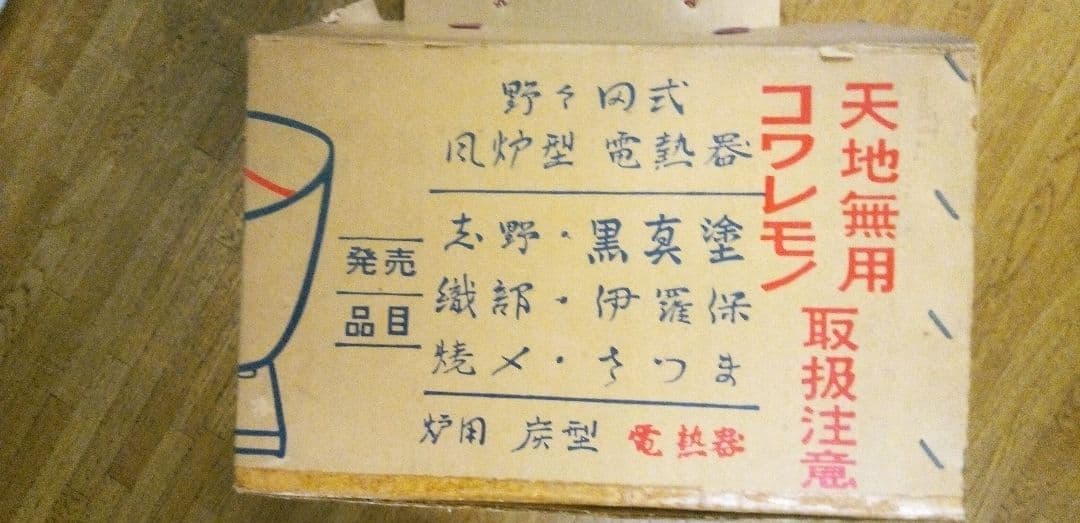 天地無用
コワレモノ
取扱注意
野々田式
風炉型 電熱器
発売
品目
志野・黒真塗
織部・伊羅保
焼〆・さつま
炉用 炭型 電熱器